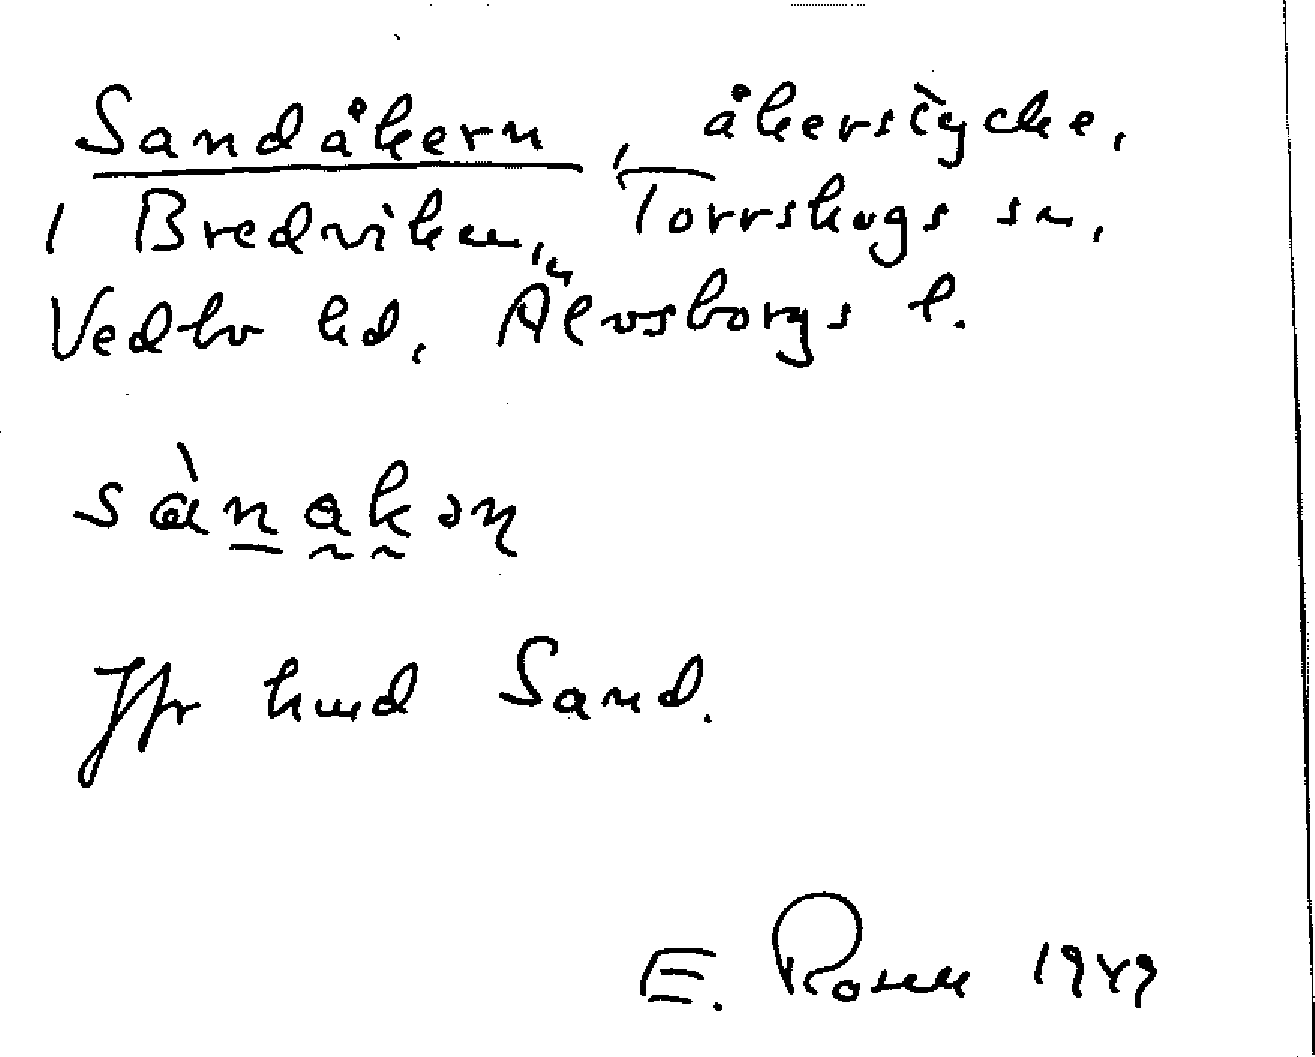 Sandåkern, åkerstycke,
i Bredviken, Torrskogs sn,
Vedbo hd, Älvsborgs l.
sànakən
Jfr hmd Sand.
E. Rosen 1949